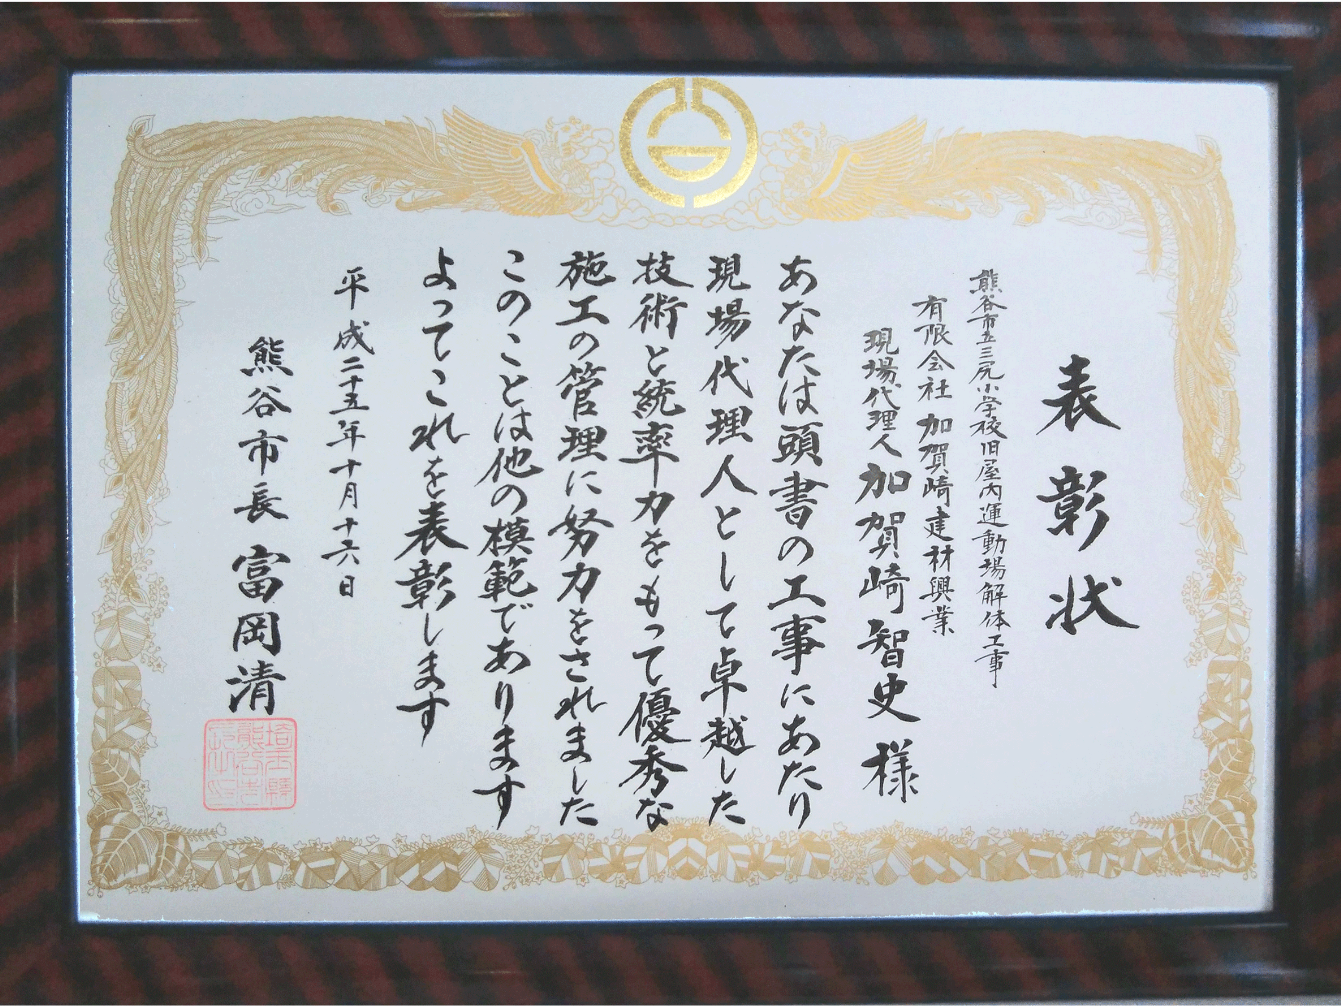 表彰状
熊谷市立三尻小学校旧屋内運動場解体工事
有限会社 加賀崎建材興業
現場代理人 加賀崎智史 様
あなたは頭書の工事にあたり
現場代理人として卓越した
技術と統率力をもって優秀な
施工の管理に努力をされました
このことは他の模範であります
よってこれを表彰します
平成二十五年十月十六日
熊谷市長 富岡清